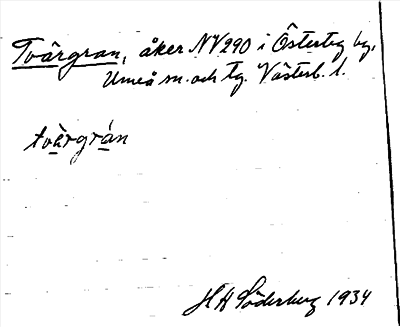 Tvärgran, åker NV290 i Österteg by,
Umeå sn. och tg. Västerb. l.
tvàrgrán
H H Söderberg 1934